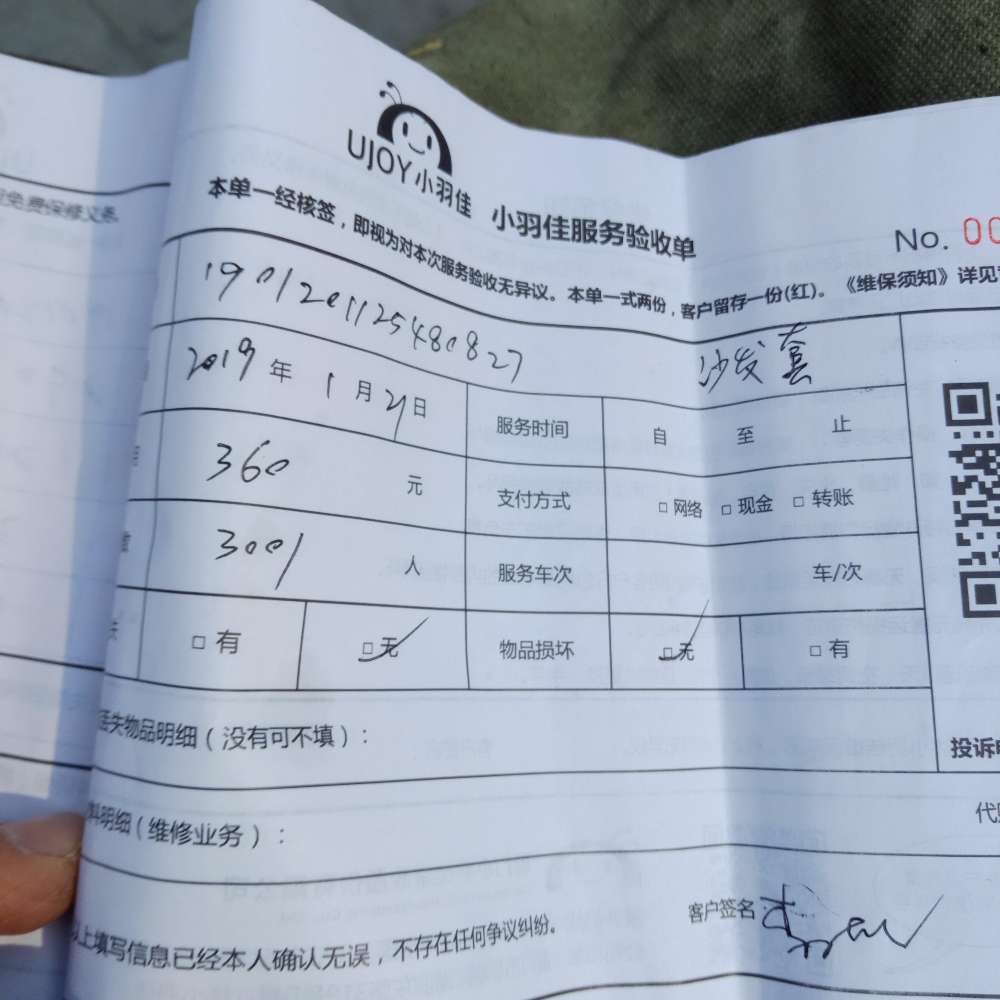 UJOY小羽佳
小羽佳服务验收单
No. 00
本单一经核签，即视为对本次服务验收无异议。本单一式两份，客户留存一份(红)。《维保须知》详见
免费保修义务
1901201125480827 沙发套
2019年1月21日 服务时间 自 至 止
360 元 支付方式 □网络 □现金 □转账
3001 人 服务车次 车/次
□有 □无 物品损坏 □无 □有
丢失物品明细（没有可不填）：
投诉电
料明细（维修业务）：
以上填写信息已经本人确认无误，不存在任何争议纠纷。
客户签名